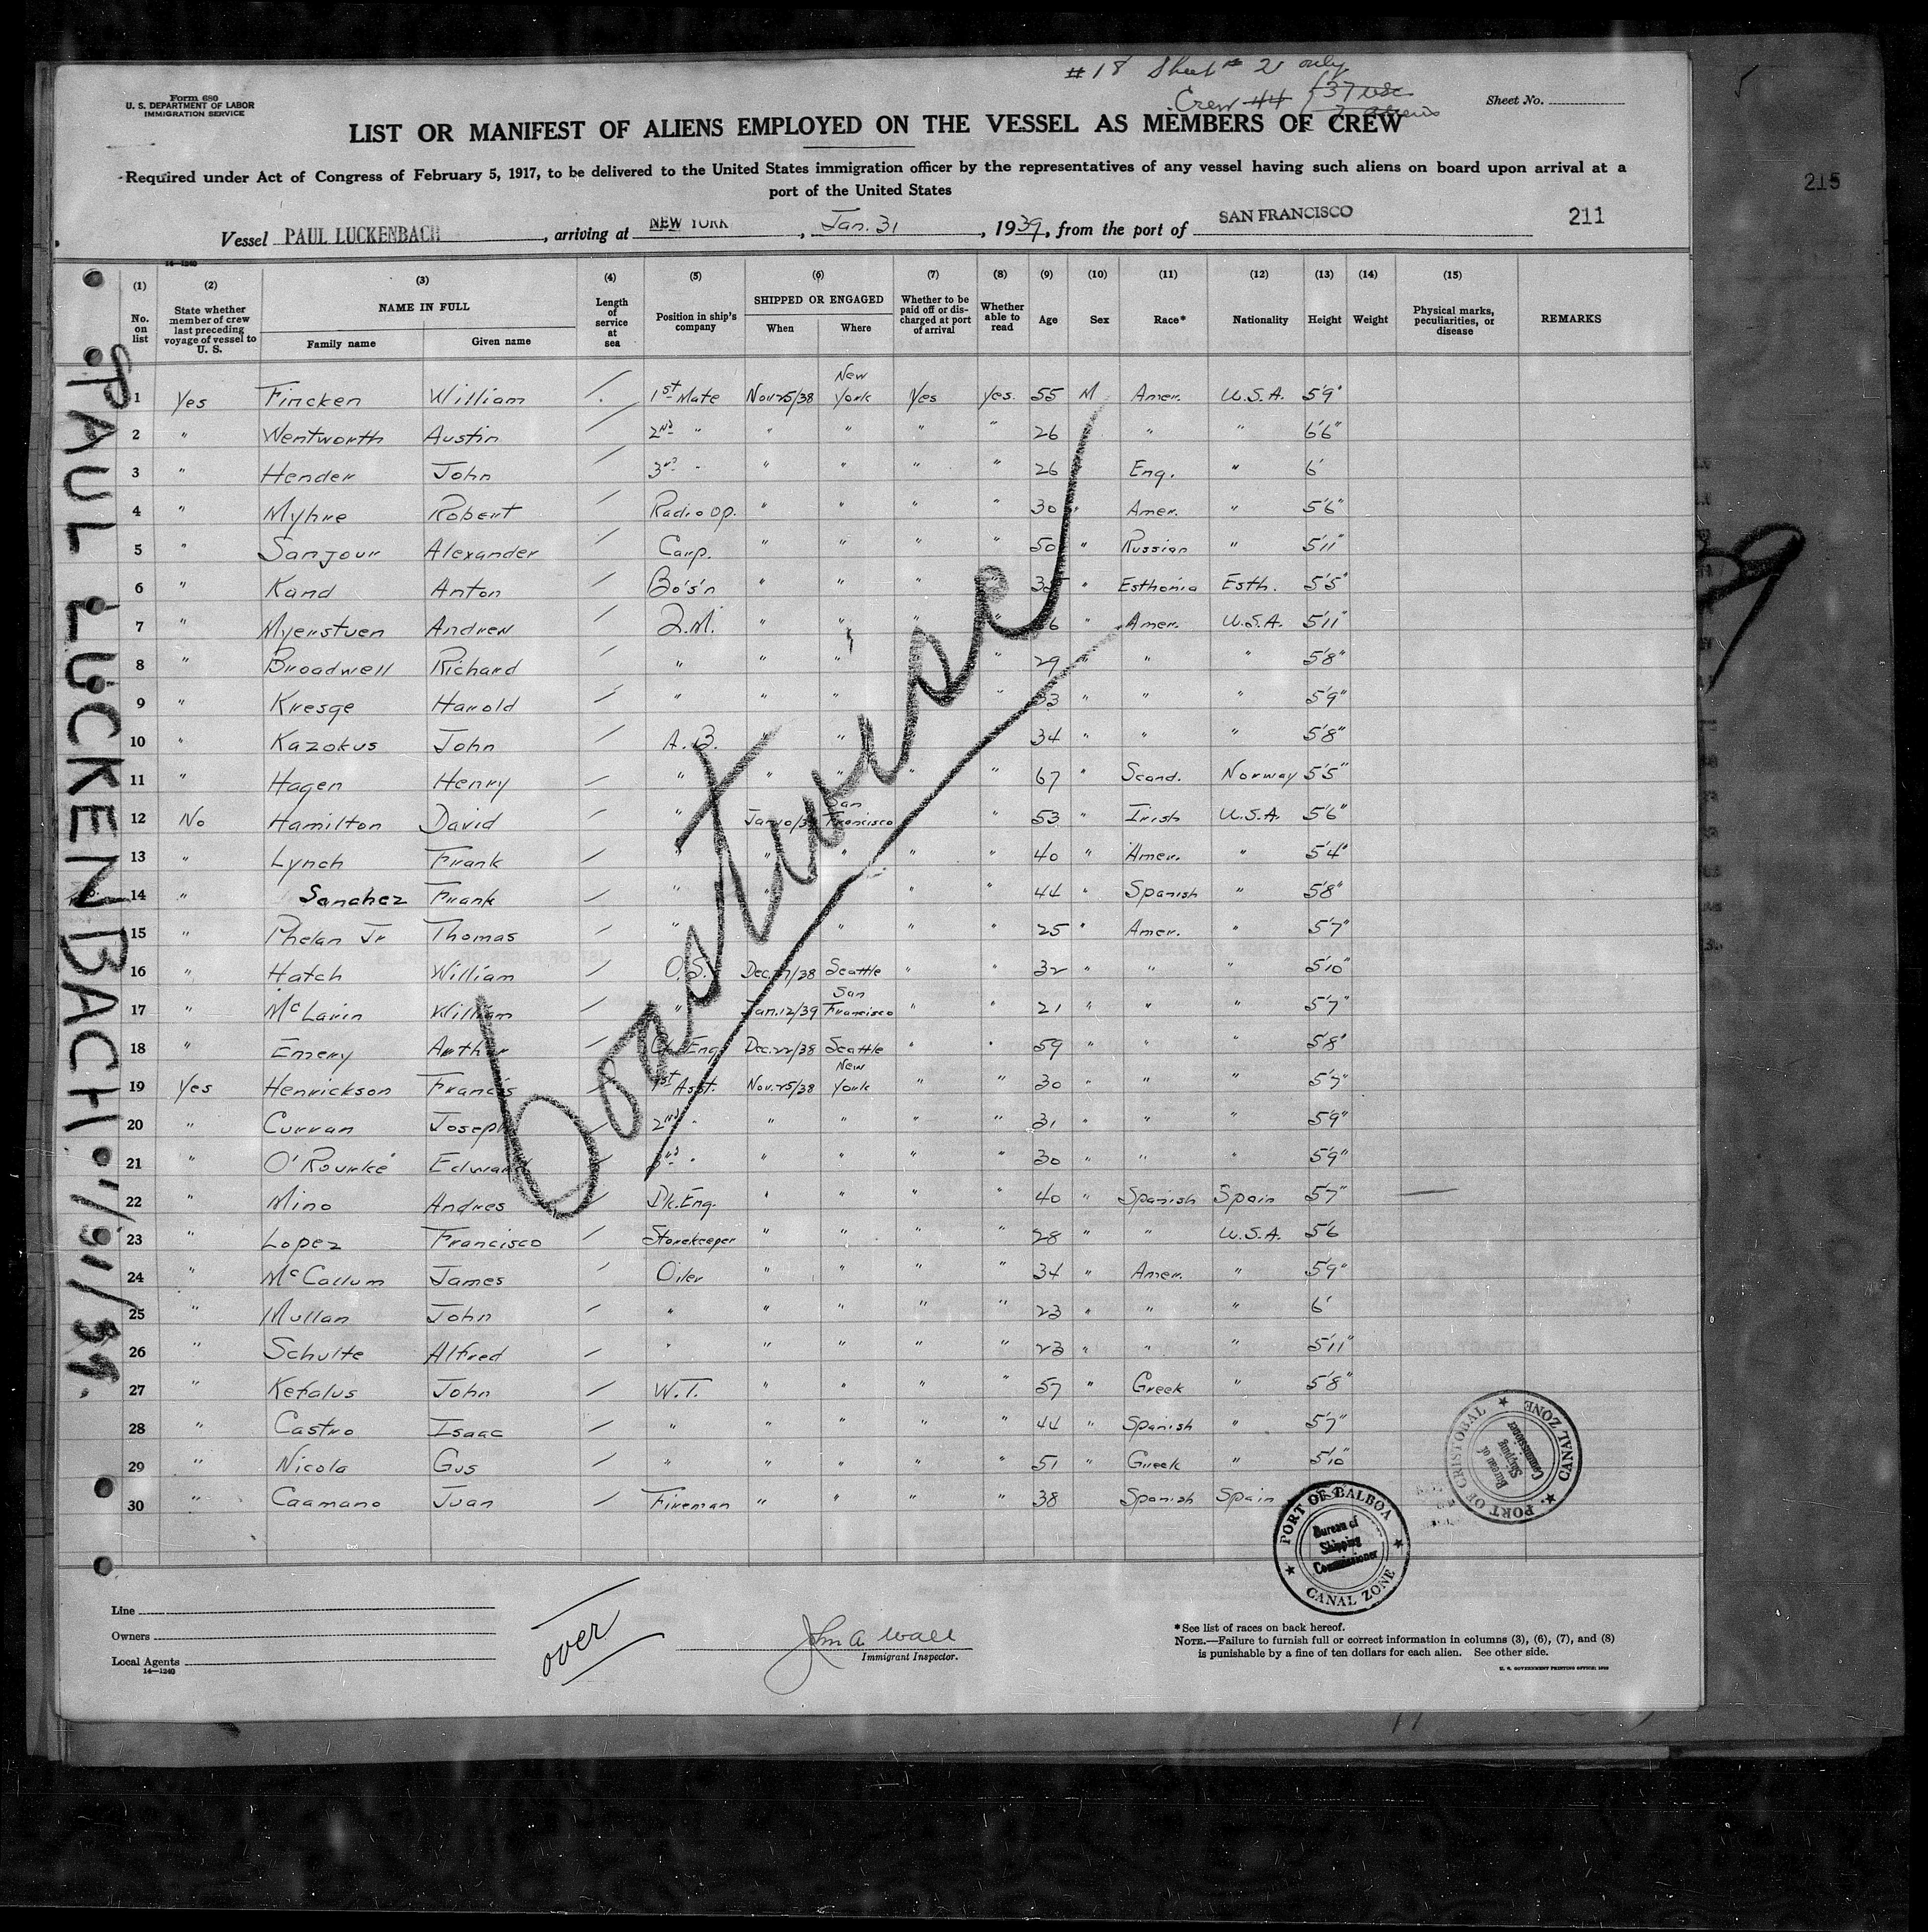 # 18 Sheet # 2 only
Crew 44 { 37 usc
7 aliens
Form 680
U. S. DEPARTMENT OF LABOR
IMMIGRATION SERVICE
Sheet No.
5
LIST OR MANIFEST OF ALIENS EMPLOYED ON THE VESSEL AS MEMBERS OF CREW
Required under Act of Congress of February 5, 1917, to be delivered to the United States immigration officer by the representatives of any vessel having such aliens on board upon arrival at a
port of the United States
215
Vessel PAUL LUCKENBACH, arriving at NEW YORK, Jan. 31, 1939, from the port of SAN FRANCISCO 211
14-1240
(1) (2) (3) (4) (5) (6) (7) (8) (9) (10) (11) (12) (13) (14) (15)
No. on list
State whether member of crew last preceding voyage of vessel to U. S.
NAME IN FULL
Family name Given name
Length of service at sea
Position in ship's company
SHIPPED OR ENGAGED
When Where
Whether to be paid off or discharged at port of arrival
Whether able to read
Age Sex Race* Nationality Height Weight
Physical marks, peculiarities, or disease
REMARKS
1 Yes Fincken William / 1st Mate Nov 25/38 New York Yes Yes. 55 M Amer. U.S.A. 5'9"
2 " Wentworth Austin / 2nd " " " " " 26 " " 6'6"
3 " Hender John / 3rd " " " " " 26 Eng. " 6'
4 " Myhre Robert / Radio Op. " " " " 30 " Amer. " 5'6"
5 " Sanjour Alexander / Carp. " " " " 50 " Russian " 5'11"
6 " Kand Anton / Bo's'n " " " 38 " Esthonia Esth. 5'5"
7 " Myerstuen Andrew / Q.M. " " " " " Amer. U.S.A. 5'11"
8 " Broadwell Richard / " " " " 29 " " " 5'8"
9 " Kresge Harold / " " " " 33 " " " 5'9"
10 " Kazokus John / A.B. " " " 34 " " " 5'8"
11 " Hagen Henry / " " " " " 67 " Scand. Norway 5'5"
12 No Hamilton David / " Jan 10/39 San Francisco " 53 " Irish U.S.A. 5'6"
13 " Lynch Frank / " " " " " 40 " Amer. " 5'4"
14 " Sanchez Frank / " " " " 44 Spanish " 5'8"
15 " Phelan Jr Thomas / " " " " 25 " Amer. " 5'7"
16 " Hatch William / O.S. Dec. 27/38 Seattle " " 32 " " " 5'10"
17 " McLarin William / " Jan. 12/39 San Francisco " " 21 " " " 5'7"
18 " Emery Arthur / Ch. Eng. Dec. 22/38 Seattle " " 59 " " " 5'8"
19 Yes Henrickson Francis / 1st Asst. Nov. 25/38 New York " " 30 " " " 5'7"
20 " Curran Joseph / 2nd " " " " " 31 " " " 5'9"
21 " O'Rourke Edward / 3rd " " " " " 30 " " " 5'9"
22 " Mino Andres / Dk. Eng. " " " " 40 " Spanish Spain 5'7" —
23 " Lopez Francisco / Storekeeper " " " " 28 " " U.S.A. 5'6
24 " McCallum James / Oiler " " " " 34 " Amer. " 5'9"
25 " Mullan John / " " " " " 23 " " " 6'
26 " Schulte Alfred / " " " " " 23 " " " 5'11"
27 " Kefalus John / W.T. " " " " 57 " Greek " 5'8"
28 " Castro Isaac / " " " " " 44 " Spanish " 5'7"
29 " Nicola Gus / " " " " " 51 " Greek " 5'10"
30 " Caamano Juan / Fireman " " " " 38 Spanish Spain
Coastwise
PAUL LUCKENBACH
PORT OF CRISTOBAL
Bureau of
Shipping
Commissioner
CANAL ZONE
PORT OF BALBOA
Bureau of
Shipping
Commissioner
CANAL ZONE
Line
Owners
Local Agents
14-1240
over
John A. Wall
Immigrant Inspector.
*See list of races on back hereof.
NOTE.—Failure to furnish full or correct information in columns (3), (6), (7), and (8)
is punishable by a fine of ten dollars for each alien. See other side.
U. S. GOVERNMENT PRINTING OFFICE: